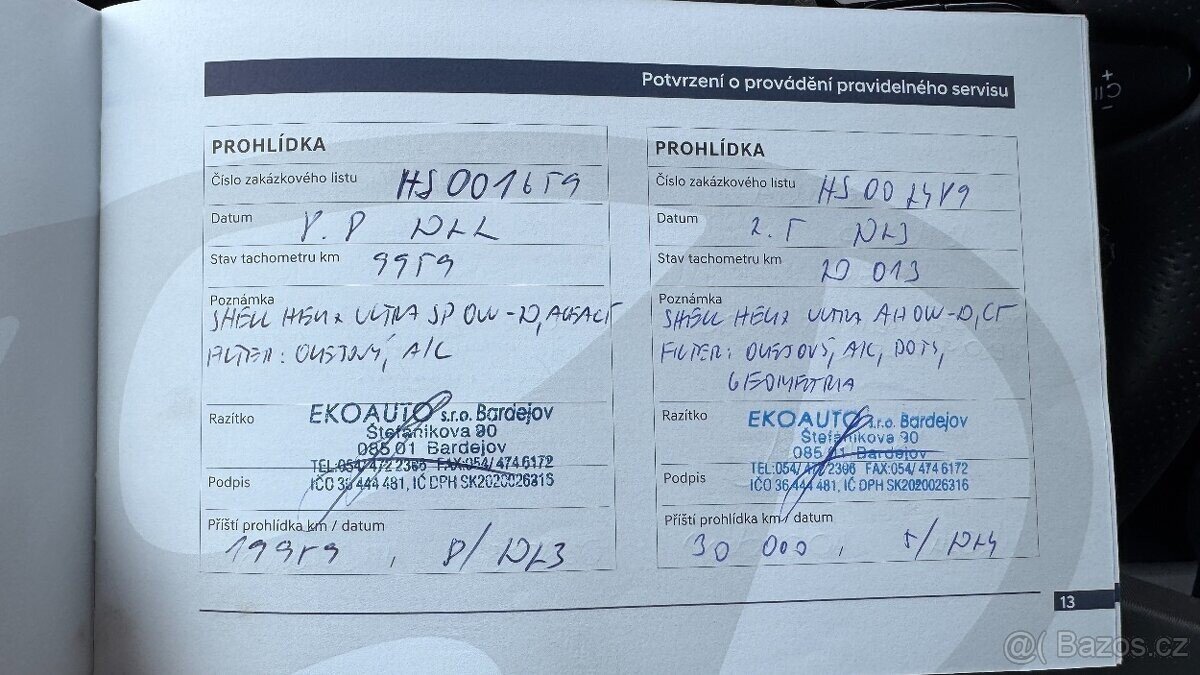 Potvrzení o provádění pravidelného servisu
PROHLÍDKA
Číslo zakázkového listu HS001659
Datum 8.8 2022
Stav tachometru km 9959
Poznámka
SHELL HELIX ULTRA SP 0W-20,
FILTER: OLEJOVÝ, A/C
Razítko
EKOAUTO s.r.o. Bardejov
Štefánikova 90
085 01 Bardejov
TEL:054/472 2386 FAX:054/474 6172
IČO 36 444 481, IČ DPH SK2020026316
Podpis
Příští prohlídka km / datum
19959, 8/2023
PROHLÍDKA
Číslo zakázkového listu HS00
Datum 2.5 2023
Stav tachometru km 20 013
Poznámka
SHELL HELIX ULTRA AH 0W-20,
FILTER: OLEJOVÝ, A/C, DOT5,
GEOMETRIA
Razítko
EKOAUTO s.r.o. Bardejov
Štefánikova 90
085 01 Bardejov
TEL:054/472 2386 FAX:054/474 6172
IČO 36 444 481, IČ DPH SK2020026316
Podpis
Příští prohlídka km / datum
30 000, 5/2024
13
@( Bazos.cz